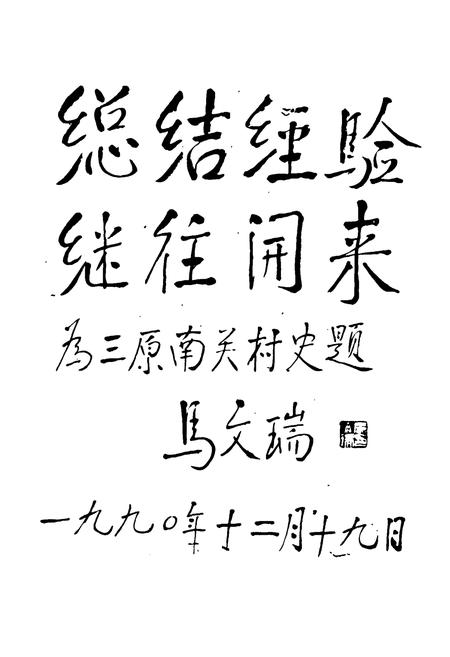 總结經驗
继往开来
为三原南关村史题
馬文瑞
一九九〇年十二月十九日